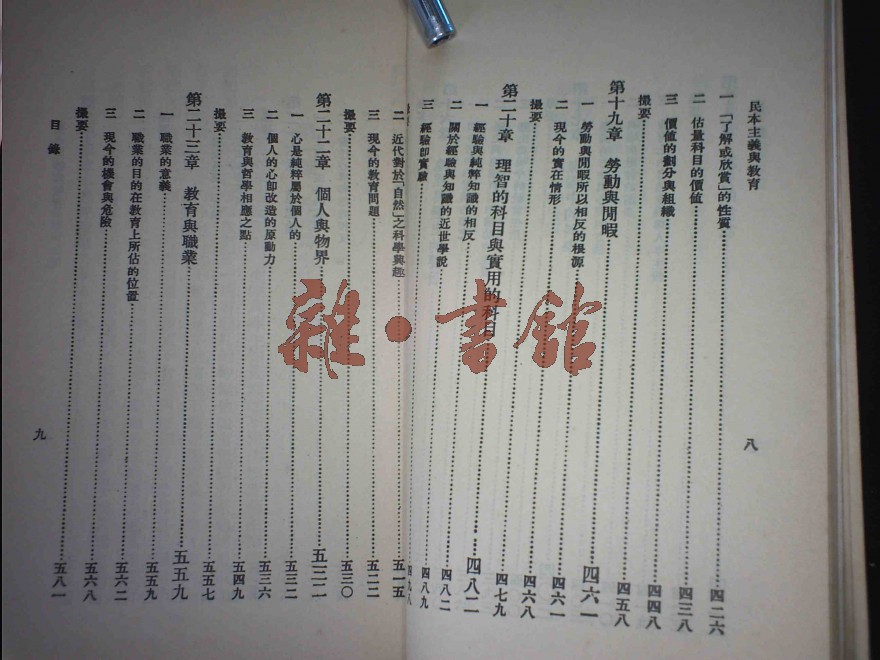 民本主義與教育
一 「了解或欣賞」的性質 四二六
二 估量科目的價值 四三八
三 價值的劃分與組織 四四八
撮要 四五八
第十九章 勞動與閒暇 四六一
一 勞動與閒暇所以相反的根源 四六一
二 現今的實在情形 四六八
撮要 四七九
第二十章 理智的科目與實用的科目 四八二
一 經驗與純粹知識的相反 四八二
二 關於經驗與知識的近世學說 四八九
三 經驗即實驗 四九八
八
二 近代對於「自然」之科學興趣 五一五
三 現今的教育問題 五二二
撮要 五三〇
第二十二章 個人與物界 五三二
一 心是純粹屬於個人的 五三二
二 個人的心即改造的原動力 五三六
三 教育與哲學相應之點 五四九
撮要 五五七
第二十三章 教育與職業 五五九
一 職業的意義 五五九
二 職業的目的在教育上所佔的位置 五六二
三 現今的機會與危險 五六八
撮要 五八一
目錄
九
雜·書館